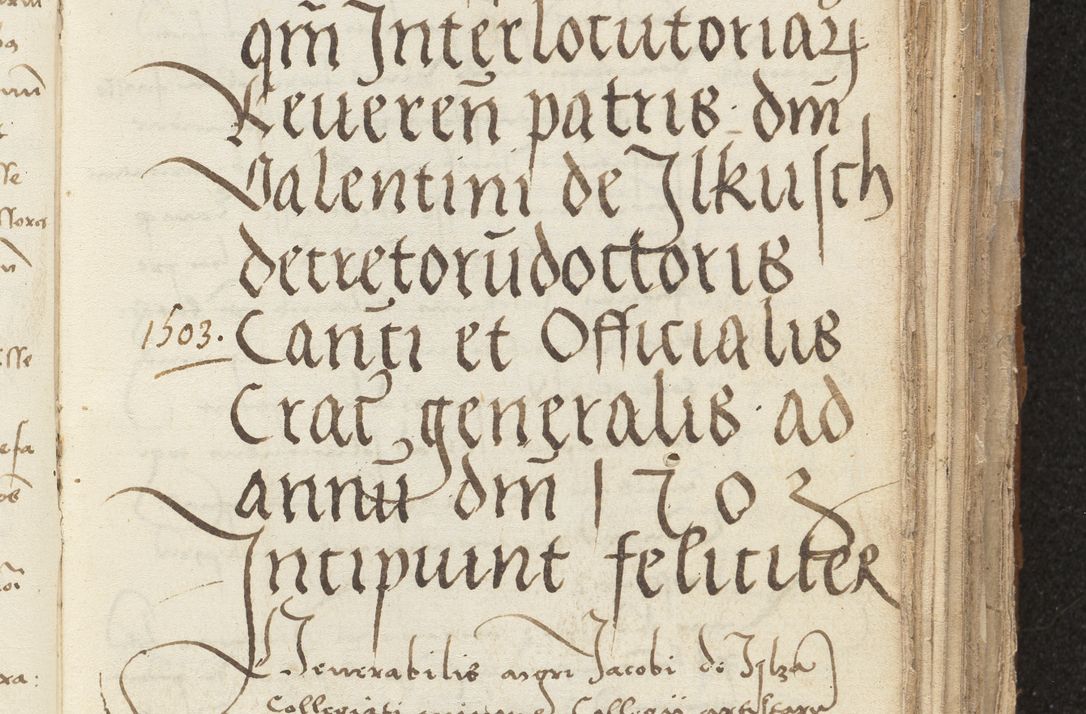 qm̃ Interlocutoriaꝝ
Reueren̄ patris dm̄
Valentini de Ilkusch
decretorū doctoris
1503. Can̄ti et Officialis
Crac̄ generalis ad
annū dm̄ 1503
Incipiunt feliciter
Venerabilis mgri Jacobi de Ilza
Collegiati Collegii artistarū